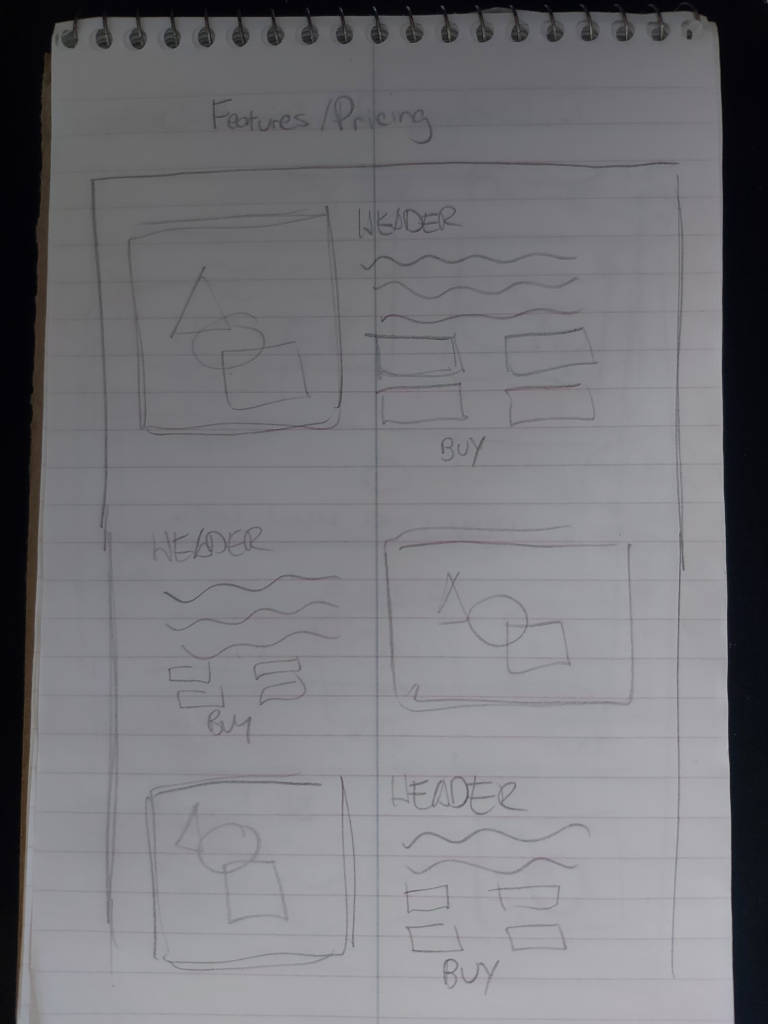 Features/Pricing
HEADER
BUY
HEADER
BUY
HEADER
BUY